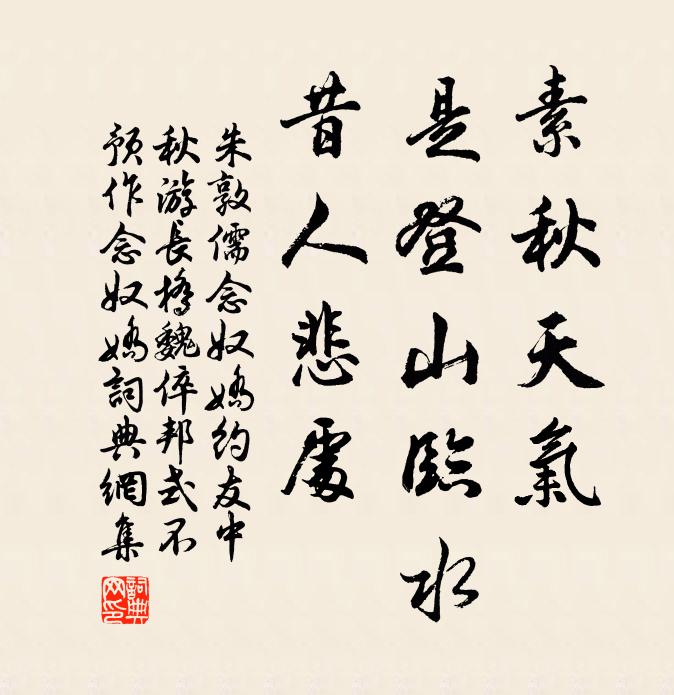 素秋天氣
是登山臨水
昔人悲處
朱敦儒念奴嬌約友中
秋游長橋魏倅邦式不
預作念奴嬌詞典網集
詞典網印